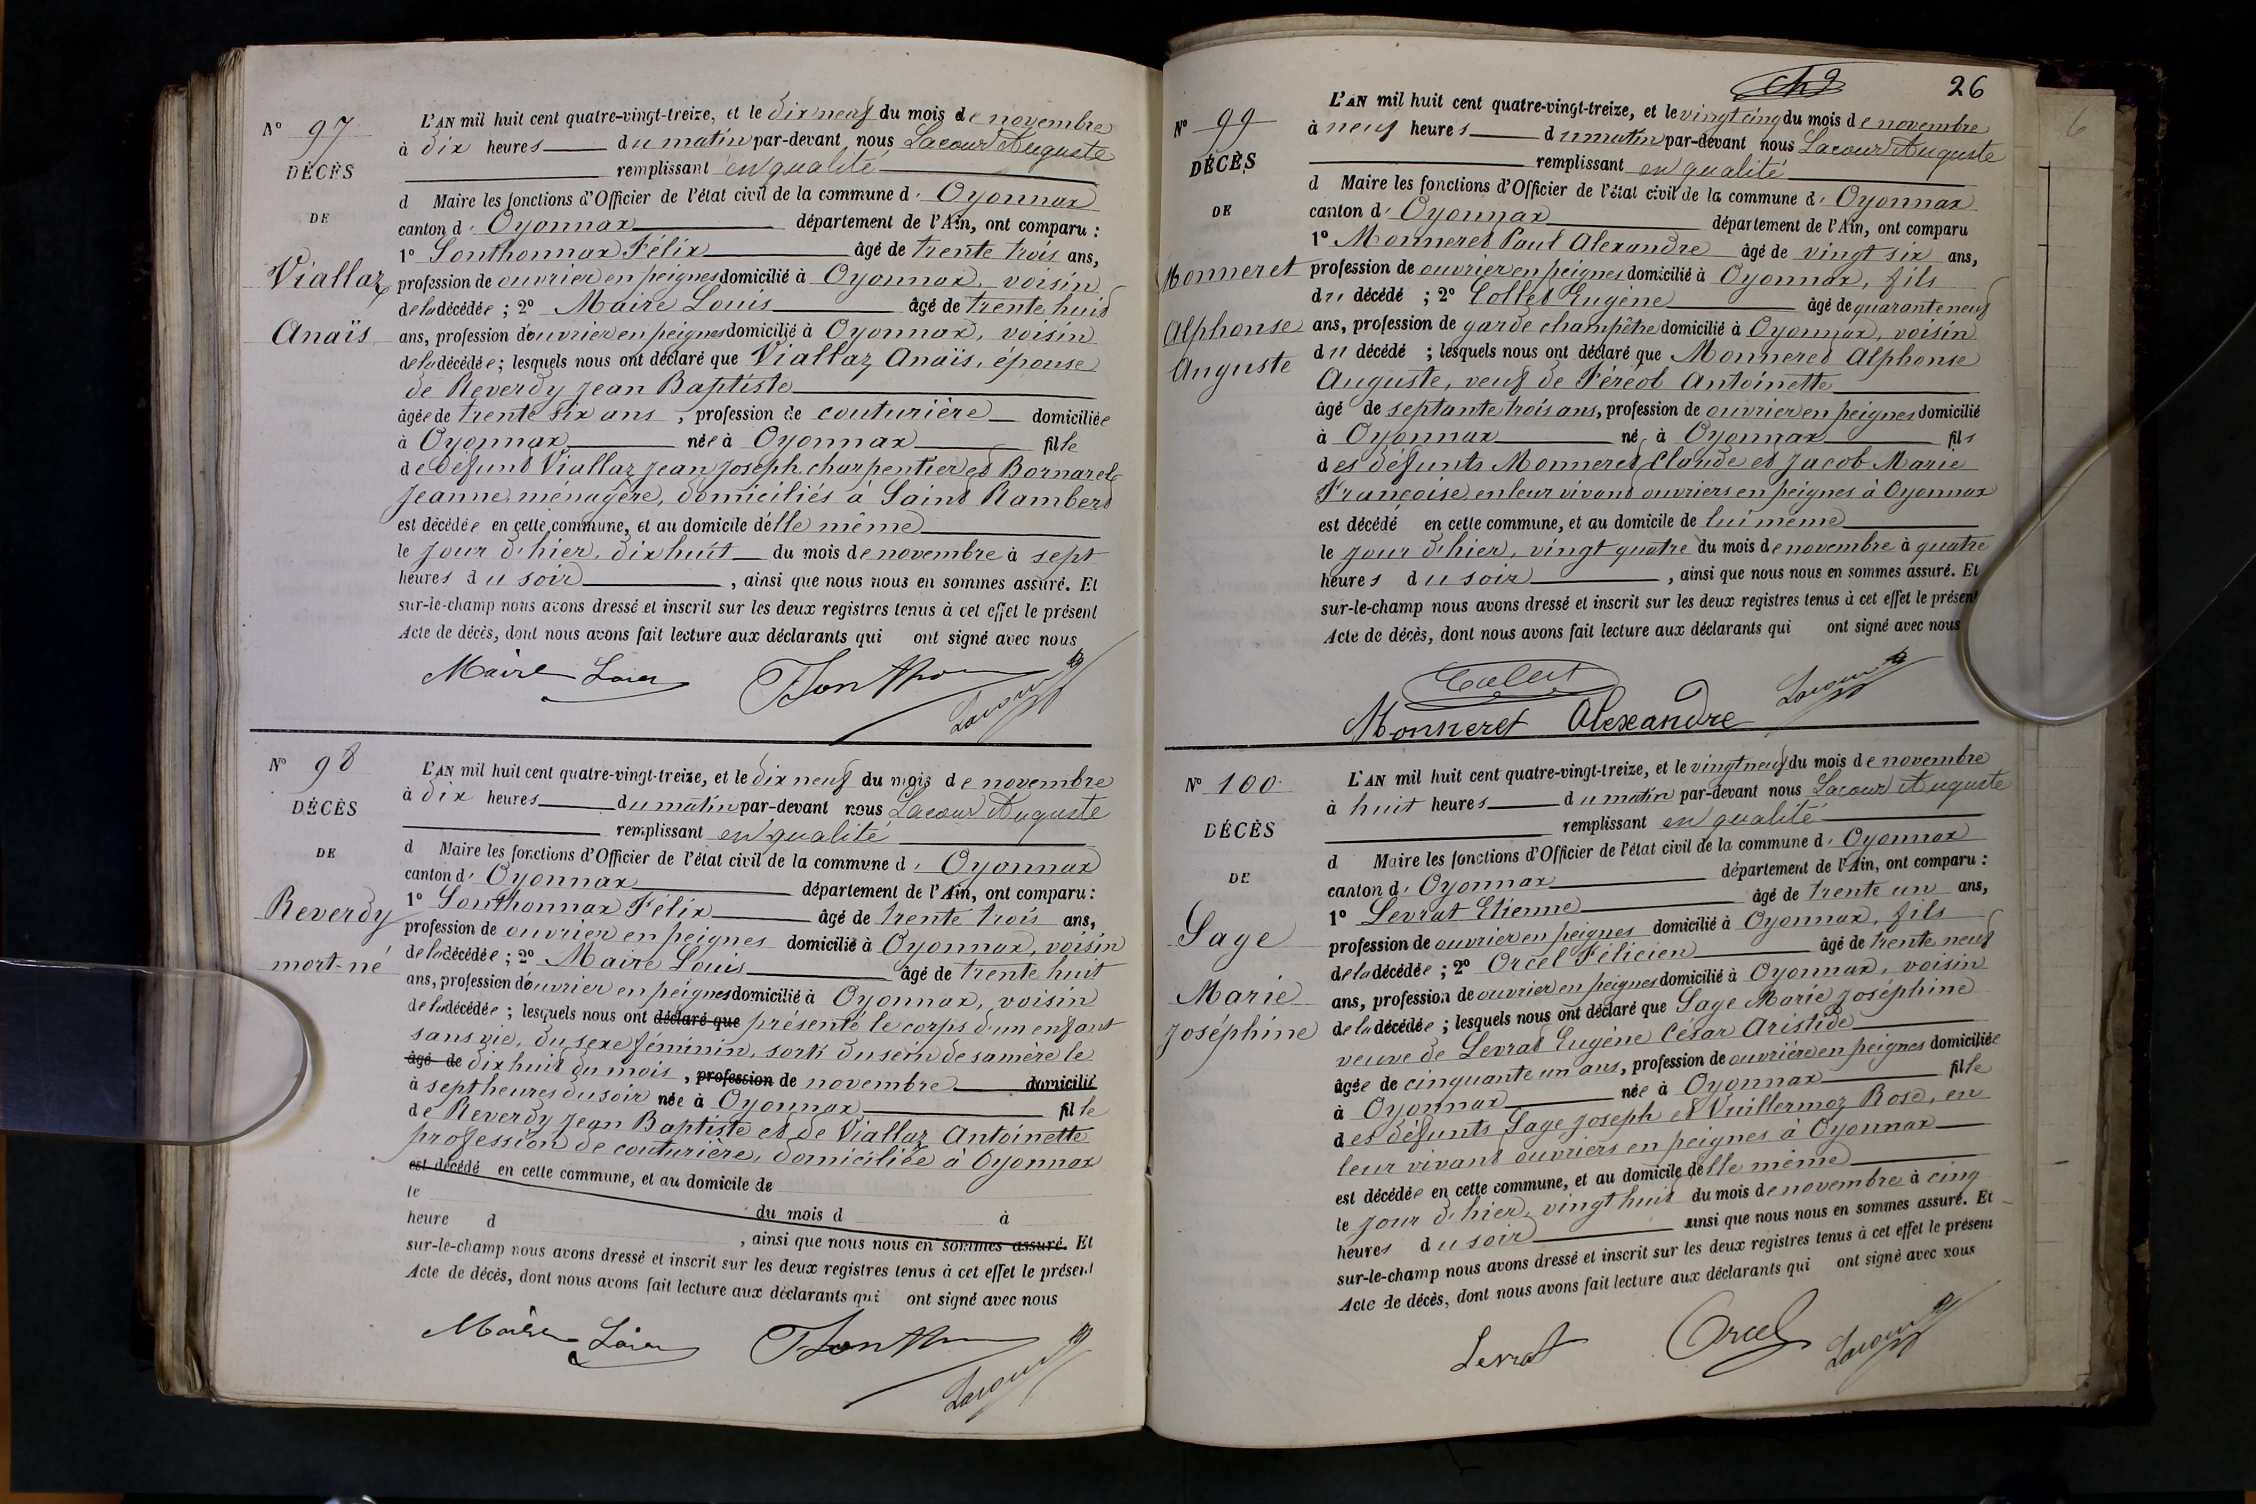 N° 97
DÉCÈS
DE
Viallaz
Anaïs
L'AN mil huit cent quatre-vingt-treize, et le dix neuf du mois de novembre
à dix heures du matin par-devant nous Lacour Auguste
remplissant en qualité
d Maire les fonctions d'Officier de l'état civil de la commune d' Oyonnax
canton d' Oyonnax département de l'Ain, ont comparu :
1° Sonthonnax Félix âgé de trente trois ans,
profession de ouvrier en peignes domicilié à Oyonnax, voisin
de la décédée ; 2° Maire Louis âgé de trente huit
ans, profession d'ouvrier en peignes domicilié à Oyonnax, voisin
de la décédée ; lesquels nous ont déclaré que Viallaz Anaïs, épouse
de Reverdy Jean Baptiste
âgée de trente six ans, profession de couturière domiciliée
à Oyonnax née à Oyonnax fille
de défunt Viallaz Jean Joseph charpentier et Bornarel
Jeanne ménagère, domiciliés à Saint Rambert
est décédée en cette commune, et au domicile d'elle même
le jour d'hier, dix huit du mois de novembre à sept
heures du soir, ainsi que nous nous en sommes assuré. Et
sur-le-champ nous avons dressé et inscrit sur les deux registres tenus à cet effet le présent
Acte de décès, dont nous avons fait lecture aux déclarants qui ont signé avec nous
Maire Louis FSonthon Lacour
N° 98
DÉCÈS
DE
Reverdy
mort-né
L'AN mil huit cent quatre-vingt-treize, et le dix neuf du mois de novembre
à dix heures du matin par-devant nous Lacour Auguste
remplissant en qualité
d Maire les fonctions d'Officier de l'état civil de la commune d' Oyonnax
canton d' Oyonnax département de l'Ain, ont comparu :
1° Sonthonnax Félix âgé de trente trois ans,
profession de ouvrier en peignes domicilié à Oyonnax, voisin
de la décédée ; 2° Maire Louis âgé de trente huit
ans, profession d'ouvrier en peignes domicilié à Oyonnax, voisin
de la décédée ; lesquels nous ont déclaré que présenté le corps d'un enfant
sans vie, du sexe féminin, sorti du sein de sa mère le
âgé de dix huit du mois, profession de novembre domicilié
à sept heures du soir née à Oyonnax fille
de Reverdy Jean Baptiste et de Viallaz Antoinette
profession de couturière, domiciliée à Oyonnax
est décédé en cette commune, et au domicile de
le du mois d à
heure d , ainsi que nous nous en sommes assuré. Et
sur-le-champ nous avons dressé et inscrit sur les deux registres tenus à cet effet le présent
Acte de décès, dont nous avons fait lecture aux déclarants qui ont signé avec nous
Maire Louis FSonthon Lacour
26
N° 99
DÉCÈS
DE
Monneret
Alphonse
Auguste
L'AN mil huit cent quatre-vingt-treize, et le vingt cinq du mois de novembre
à neuf heures du matin par-devant nous Lacour Auguste
remplissant en qualité
d Maire les fonctions d'Officier de l'état civil de la commune d' Oyonnax
canton d' Oyonnax département de l'Ain, ont comparu
1° Monneret Paul Alexandre âgé de vingt six ans,
profession de ouvrier en peignes domicilié à Oyonnax, fils
du décédé ; 2° Collet Eugène âgé de quarante neuf
ans, profession de garde champêtre domicilié à Oyonnax, voisin
du décédé ; lesquels nous ont déclaré que Monneret Alphonse
Auguste, veuf de Féréol Antoinette
âgé de septante trois ans, profession de ouvrier en peignes domicilié
à Oyonnax né à Oyonnax fils
des défunts Monneret Claude et Jacob Marie
Françoise en leur vivant ouvriers en peignes à Oyonnax
est décédé en cette commune, et au domicile de lui même
le jour d'hier, vingt quatre du mois de novembre à quatre
heures du soir, ainsi que nous nous en sommes assuré. Et
sur-le-champ nous avons dressé et inscrit sur les deux registres tenus à cet effet le présent
Acte de décès, dont nous avons fait lecture aux déclarants qui ont signé avec nous
Collet Lacour
Monneret Alexandre
N° 100
DÉCÈS
DE
Sage
Marie
Joséphine
L'AN mil huit cent quatre-vingt-treize, et le vingt neuf du mois de novembre
à huit heures du matin par-devant nous Lacour Auguste
remplissant en qualité
d Maire les fonctions d'Officier de l'état civil de la commune d' Oyonnax
canton d' Oyonnax département de l'Ain, ont comparu :
1° Levrat Etienne âgé de trente un ans,
profession de ouvrier en peignes domicilié à Oyonnax, fils
de la décédée ; 2° Orcel Félicien âgé de trente neuf
ans, profession de ouvrier en peignes domicilié à Oyonnax, voisin
de la décédée ; lesquels nous ont déclaré que Sage Marie Joséphine
veuve de Levrat Eugène César Aristide
âgée de cinquante un ans, profession de ouvrière en peignes domiciliée
à Oyonnax née à Oyonnax fille
des défunts Sage Joseph et Vuillermoz Rose, en
leur vivant ouvriers en peignes à Oyonnax
est décédée en cette commune, et au domicile d'elle même
le jour d'hier, vingt huit du mois de novembre à cinq
heures du soir ainsi que nous nous en sommes assuré. Et
sur-le-champ nous avons dressé et inscrit sur les deux registres tenus à cet effet le présent
Acte de décès, dont nous avons fait lecture aux déclarants qui ont signé avec nous
Levrat Orcel Lacour